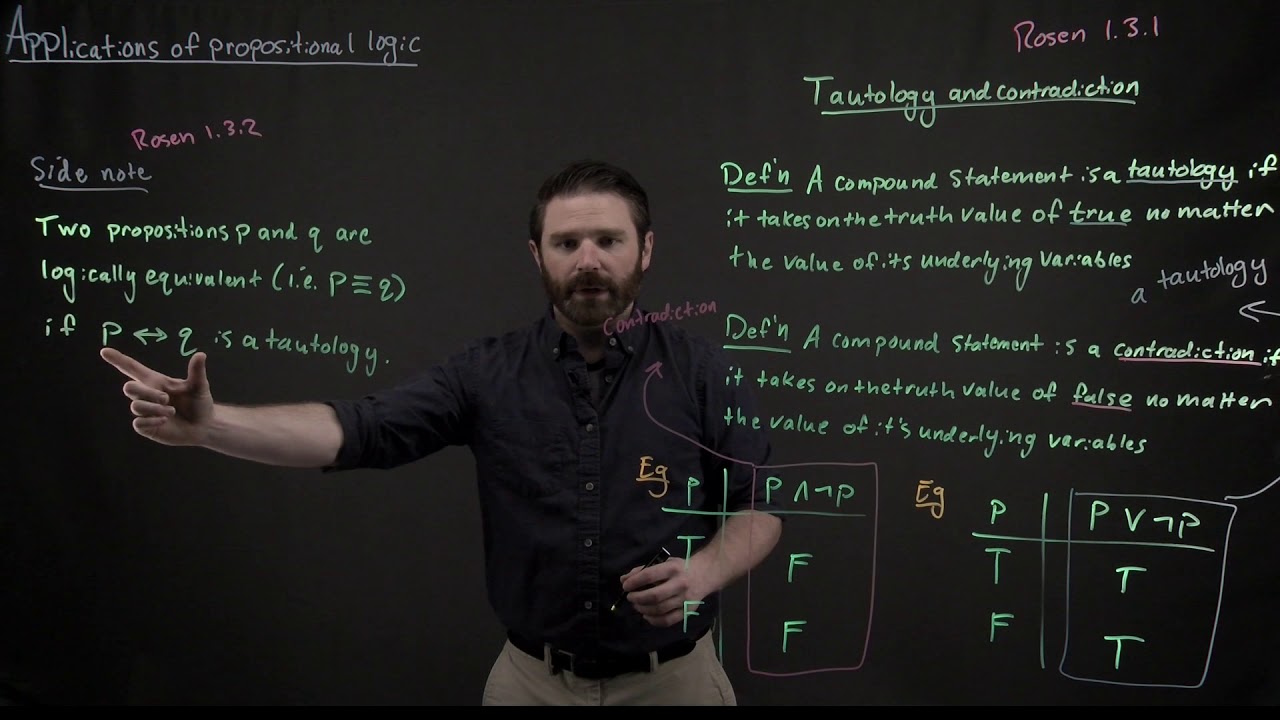 Applications of propositional logic
Rosen 1.3.2
Side note
Two propositions p and q are
logically equivalent (i.e. P≡q)
if P ↔ q is a tautology.
Rosen 1.3.1
Tautology and contradiction
Def'n A compound statement is a tautology if
it takes on the truth value of true no matter
the value of its underlying variables
a tautology
Def'n A compound statement is a contradiction if
it takes on the truth value of false no matter
the value of it's underlying variables
Contradiction
Eg
P P ∧ ¬p
T F
F F
Eg
P P ∨ ¬p
T T
F T